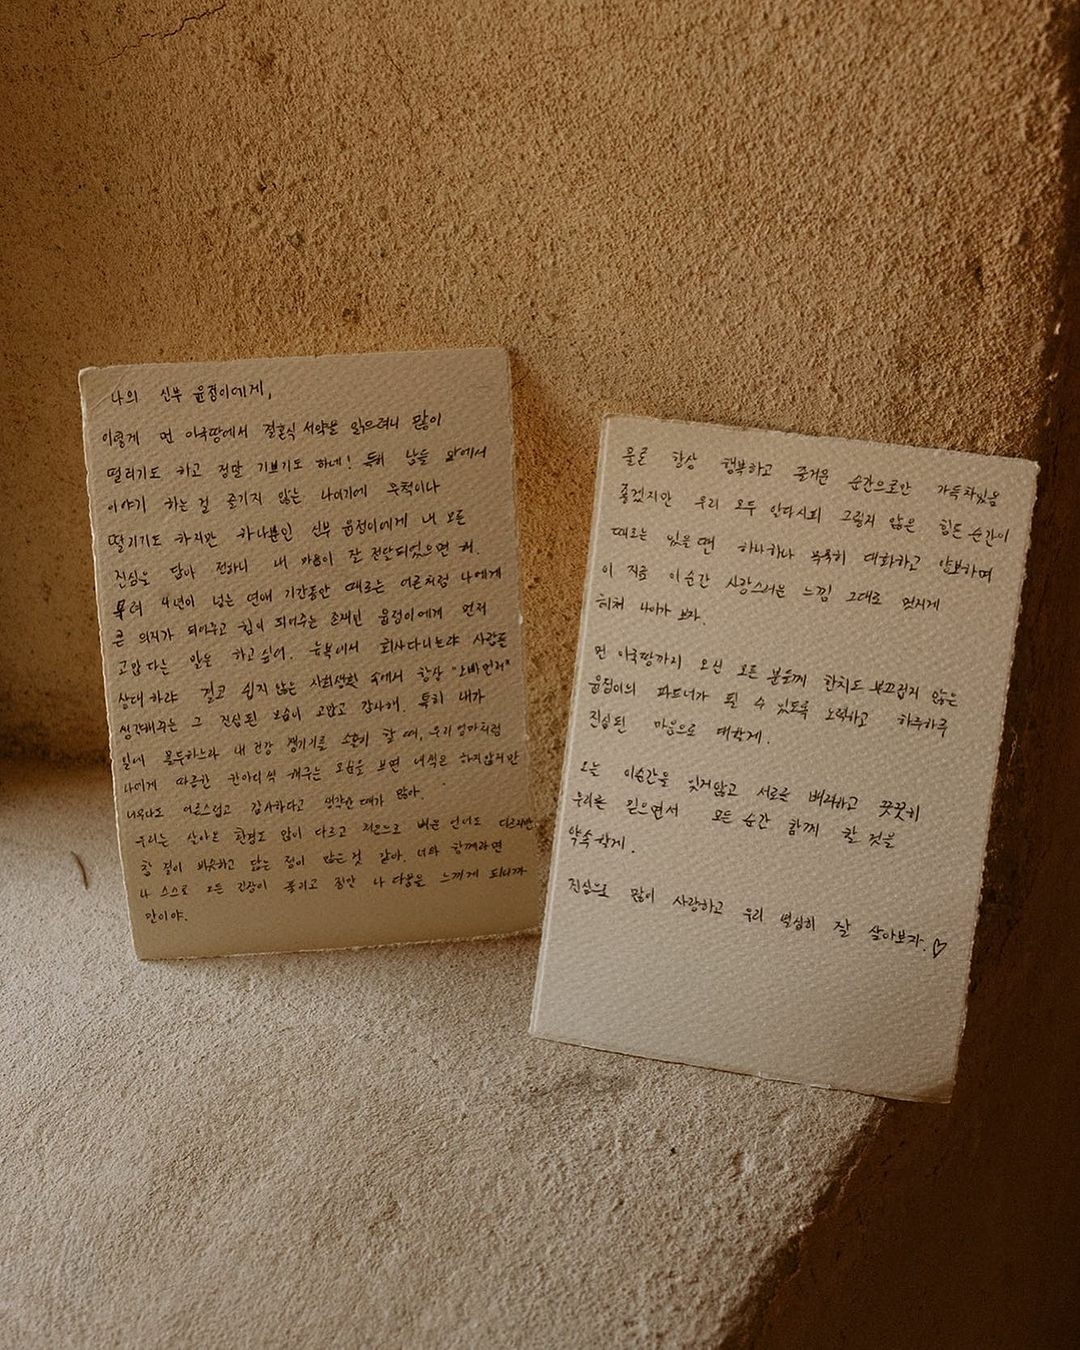 나의 신부 윤정이에게,
이렇게 먼 이국땅에서 결혼식 서약을 읽으려니 많이
떨리기도 하고 정말 기쁘기도 하네! 특히 남들 앞에서
이야기 하는 걸 즐기지 않는 나이기에 무척이나
떨기기도 하지만 하나뿐인 신부 윤정이에게 내 모든
진심을 담아 전하니 내 마음이 잘 전달되었으면 해.
우선 4년이 넘는 연애 기간동안 때로는 어른처럼 나에게
큰 의지가 되어주고 힘이 되어주는 존재인 윤정이에게 먼저
고맙다는 말을 하고싶어. 뉴욕에서 회사다니느랴 사람들
상대하랴 결코 쉽지 않은 사회생활 속에서 항상 "오빠먼저"
생각해주는 그 진심된 모습이 고맙고 감사해. 특히 내가
일에 몰두하느라 내 건강 챙기기를 소홀히 할 때, 우리 엄마처럼
나에게 따끔한 한마디씩 해주는 모습을 보면 내색은 하지않지만
너무나도 어른스럽고 감사하다고 생각한 때가 많아.
우리는 살아온 환경도 많이 다르고 처음으로 배운 언어도 다르지만
참 많이 비슷하고 닮는 점이 많은것 같아. 너와 함께라면
나 스스로 모든 긴장이 풀리고 정말 나 다움을 느끼게 되니까
말이야.
물론 항상 행복하고 즐거운 순간으로만 가득차있음
좋겠지만 우리 모두 알다시피 그렇지 않은 힘든 순간이
때로는 있을 땐 하나하나 묵묵히 대화하고 양보하며
이 지금 이 순간 사랑스러운 느낌 그대로 멋지게
헤쳐 나아가 보자.
먼 이국땅까지 오신 모든 분들께 한치도 부끄럽지 않은
윤정이의 파트너가 될 수 있도록 노력하고 하루하루
진실된 마음으로 대할게.
오늘 이순간을 잊지않고 서로를 배려하고 꿋꿋히
우리를 믿으면서 모든 순간 함께 할 것을
약속할게.
진심으로 많이 사랑하고 우리 열심히 잘 살아보자.♡